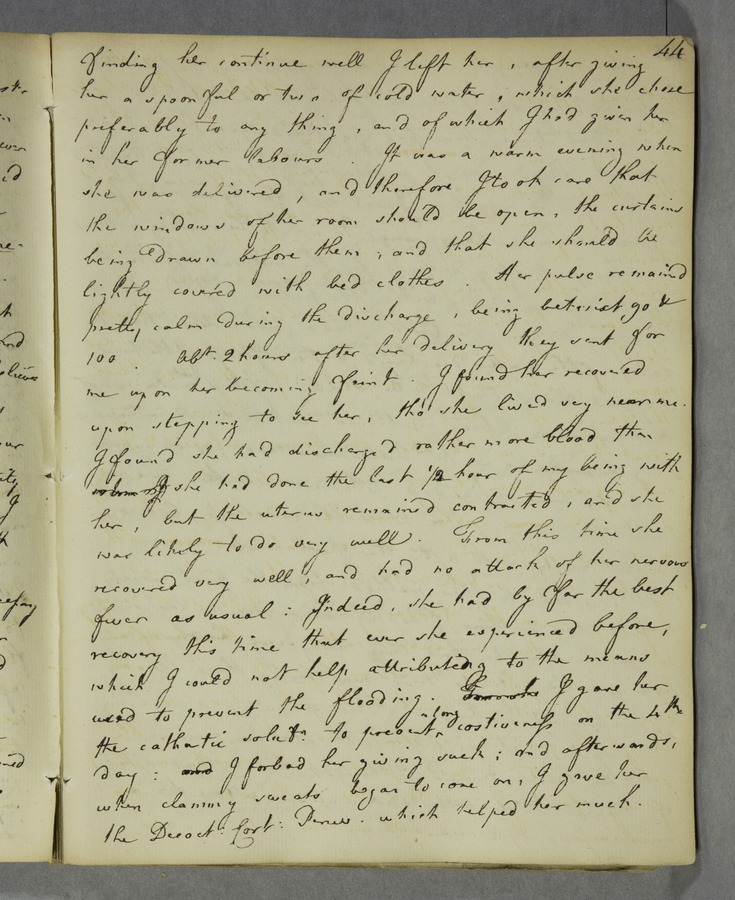 44
Finding her continue well I left her, after giving
her a spoonful or two of cold water, which she chose
preferably to any thing, and of which I had given her
in her former labours. It was a warm evening when
she was delivered, and therefore I took care that
the windows of her room should be open, the curtains
being drawn before them; and that she should be
lightly covered with bed clothes. Her pulse remained
pretty calm during the discharge, being betwixt 90 &
100. Abt. 2 hours after her delivery they sent for
me upon her becoming faint. I found her recovered
upon stepping to see her, tho' she lived very near me.
I found she had discharged rather more blood than
she had done the last 1/2 hour of my being with
her, but the uterus remained contracted, and she
was likely to do very well. From this time she
recovered very well, and had no attack of her nervous
fever as usual: Indeed, she had by far the best
recovery this time that ever she experienced before,
which I could not help attributing to the means
used to prevent the flooding. I gave her
the cathatic solutn. to prevent long costiveness on the 4th
day: and I forbad her giving suck; and afterwards,
when clammy sweats began to come on, I gave her
the Decoct: Cort: Peruv. which helped her much.